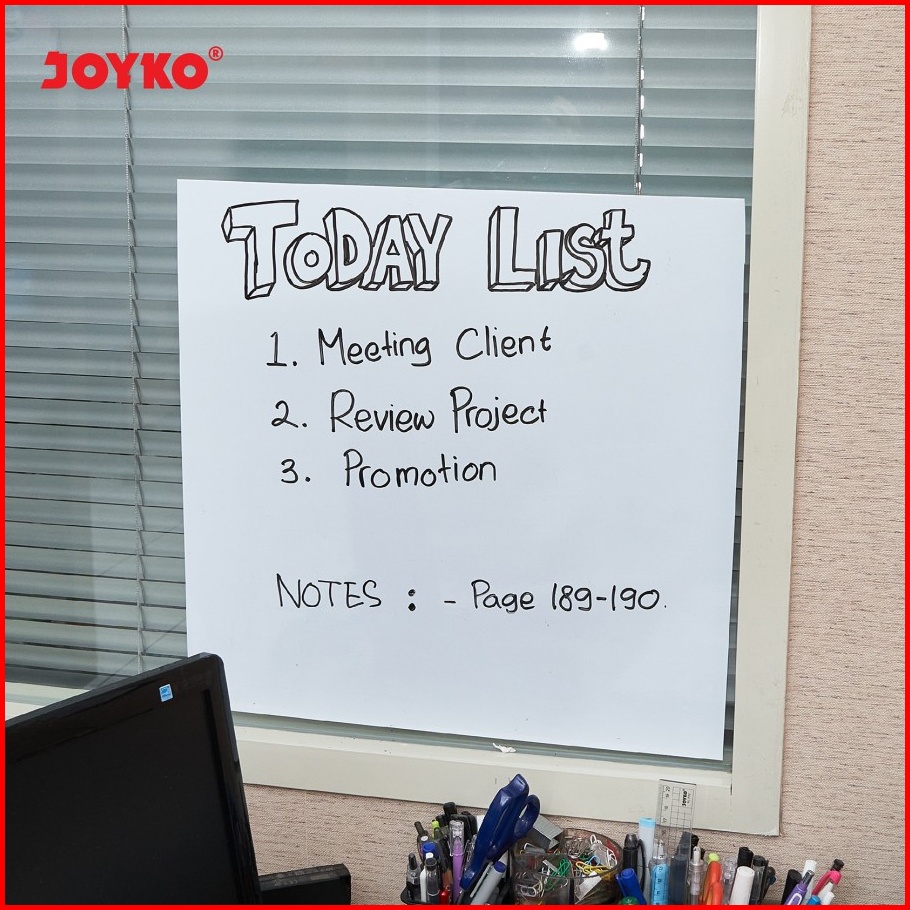 JOYKO®
TODAY LIST
1. Meeting Client
2. Review Project
3. Promotion
NOTES : - Page 189-190.